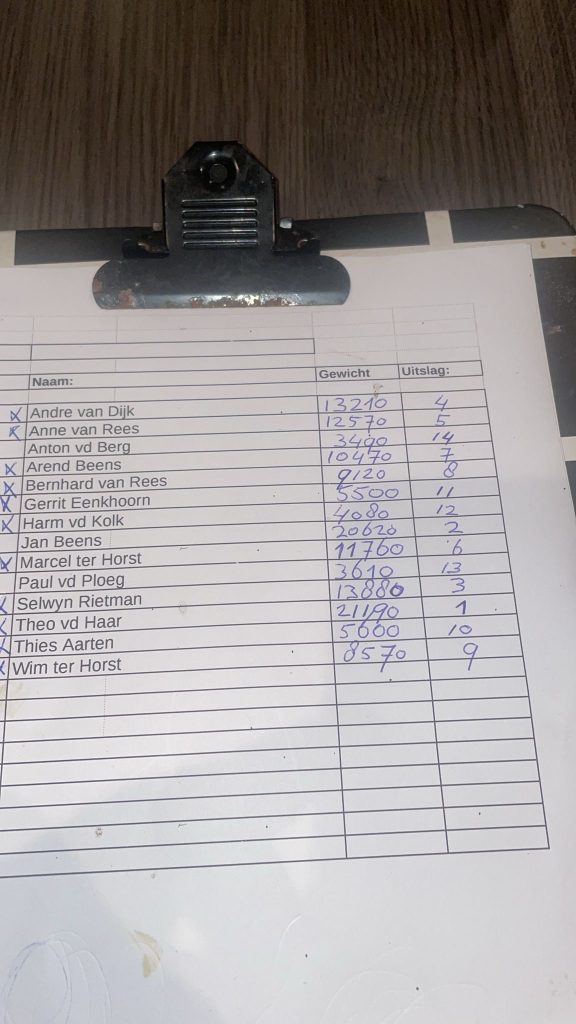 Naam: Gewicht Uitslag:
x Andre van Dijk 13210 4
x Anne van Rees 12570 5
Anton vd Berg 3490 14
x Arend Beens 10470 7
x Bernhard van Rees 9120 8
x Gerrit Eenkhoorn 5500 11
x Harm vd Kolk 4080 12
Jan Beens 20620 2
x Marcel ter Horst 11760 6
Paul vd Ploeg 3610 13
x Selwyn Rietman 13880 3
x Theo vd Haar 21190 1
x Thies Aarten 5600 10
x Wim ter Horst 8570 9